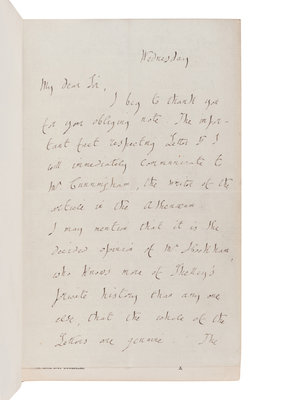 Wednesday
My Dear Sir,
I beg to thank you
for your obliging note. The impor-
tant fact respecting Letter II I
will immediately communicate to
Mr Cunningham, the writer of the
article in the Athenæum
I may mention that it is the
decided opinion of Mr Hookham,
who knows more of Shelley's
private history than any one
else, that the whole of the
Letters are genuine. The